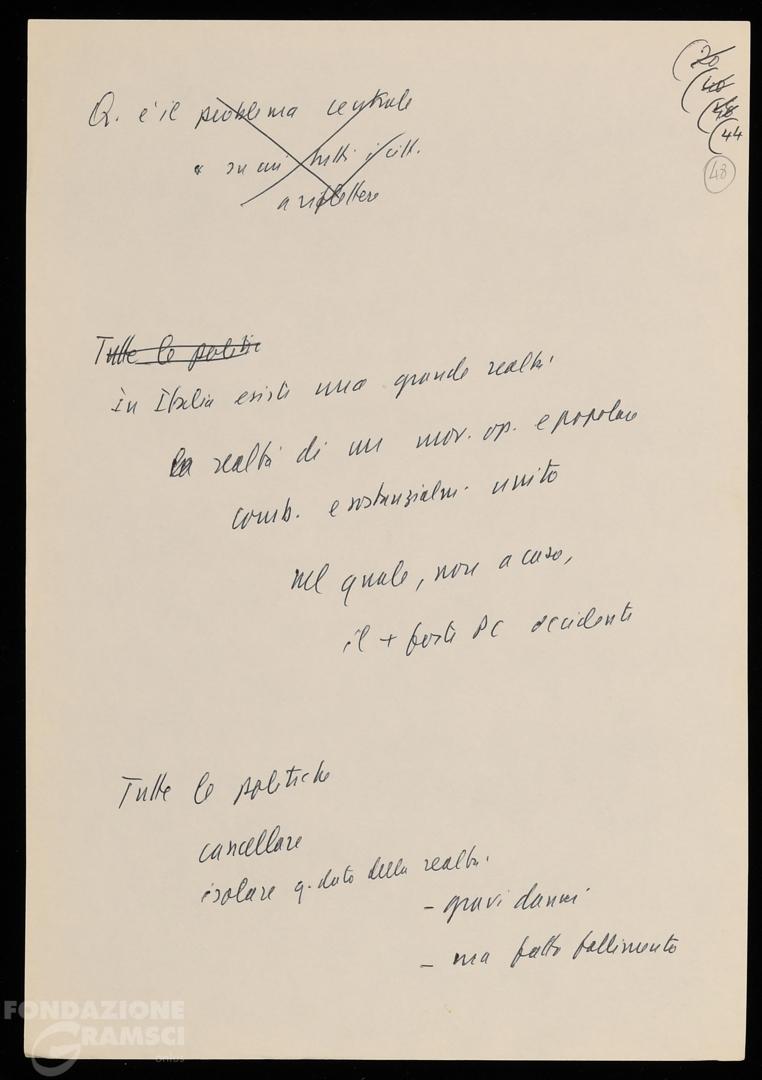 (20
(40
(48
(44
48
Q. è il problema centrale
su cui tutti i citt.
a riflettere
Tutte le politi
in Italia esiste una grande realtà:
la realtà di un mov. op. e popolare
comb. e sostanzialm. unito
nel quale, non a caso,
il + forte PC occidente
Tutte le politiche
cancellare
isolare q. dato della realtà:
- gravi danni
- ma fatto fallimento
FONDAZIONE
GRAMSCI
onlus